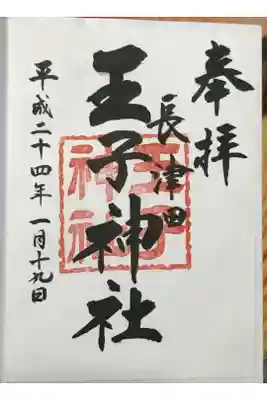 奉拝
長津田
王子神社
平成二十四年 一月十九日
王子
神社